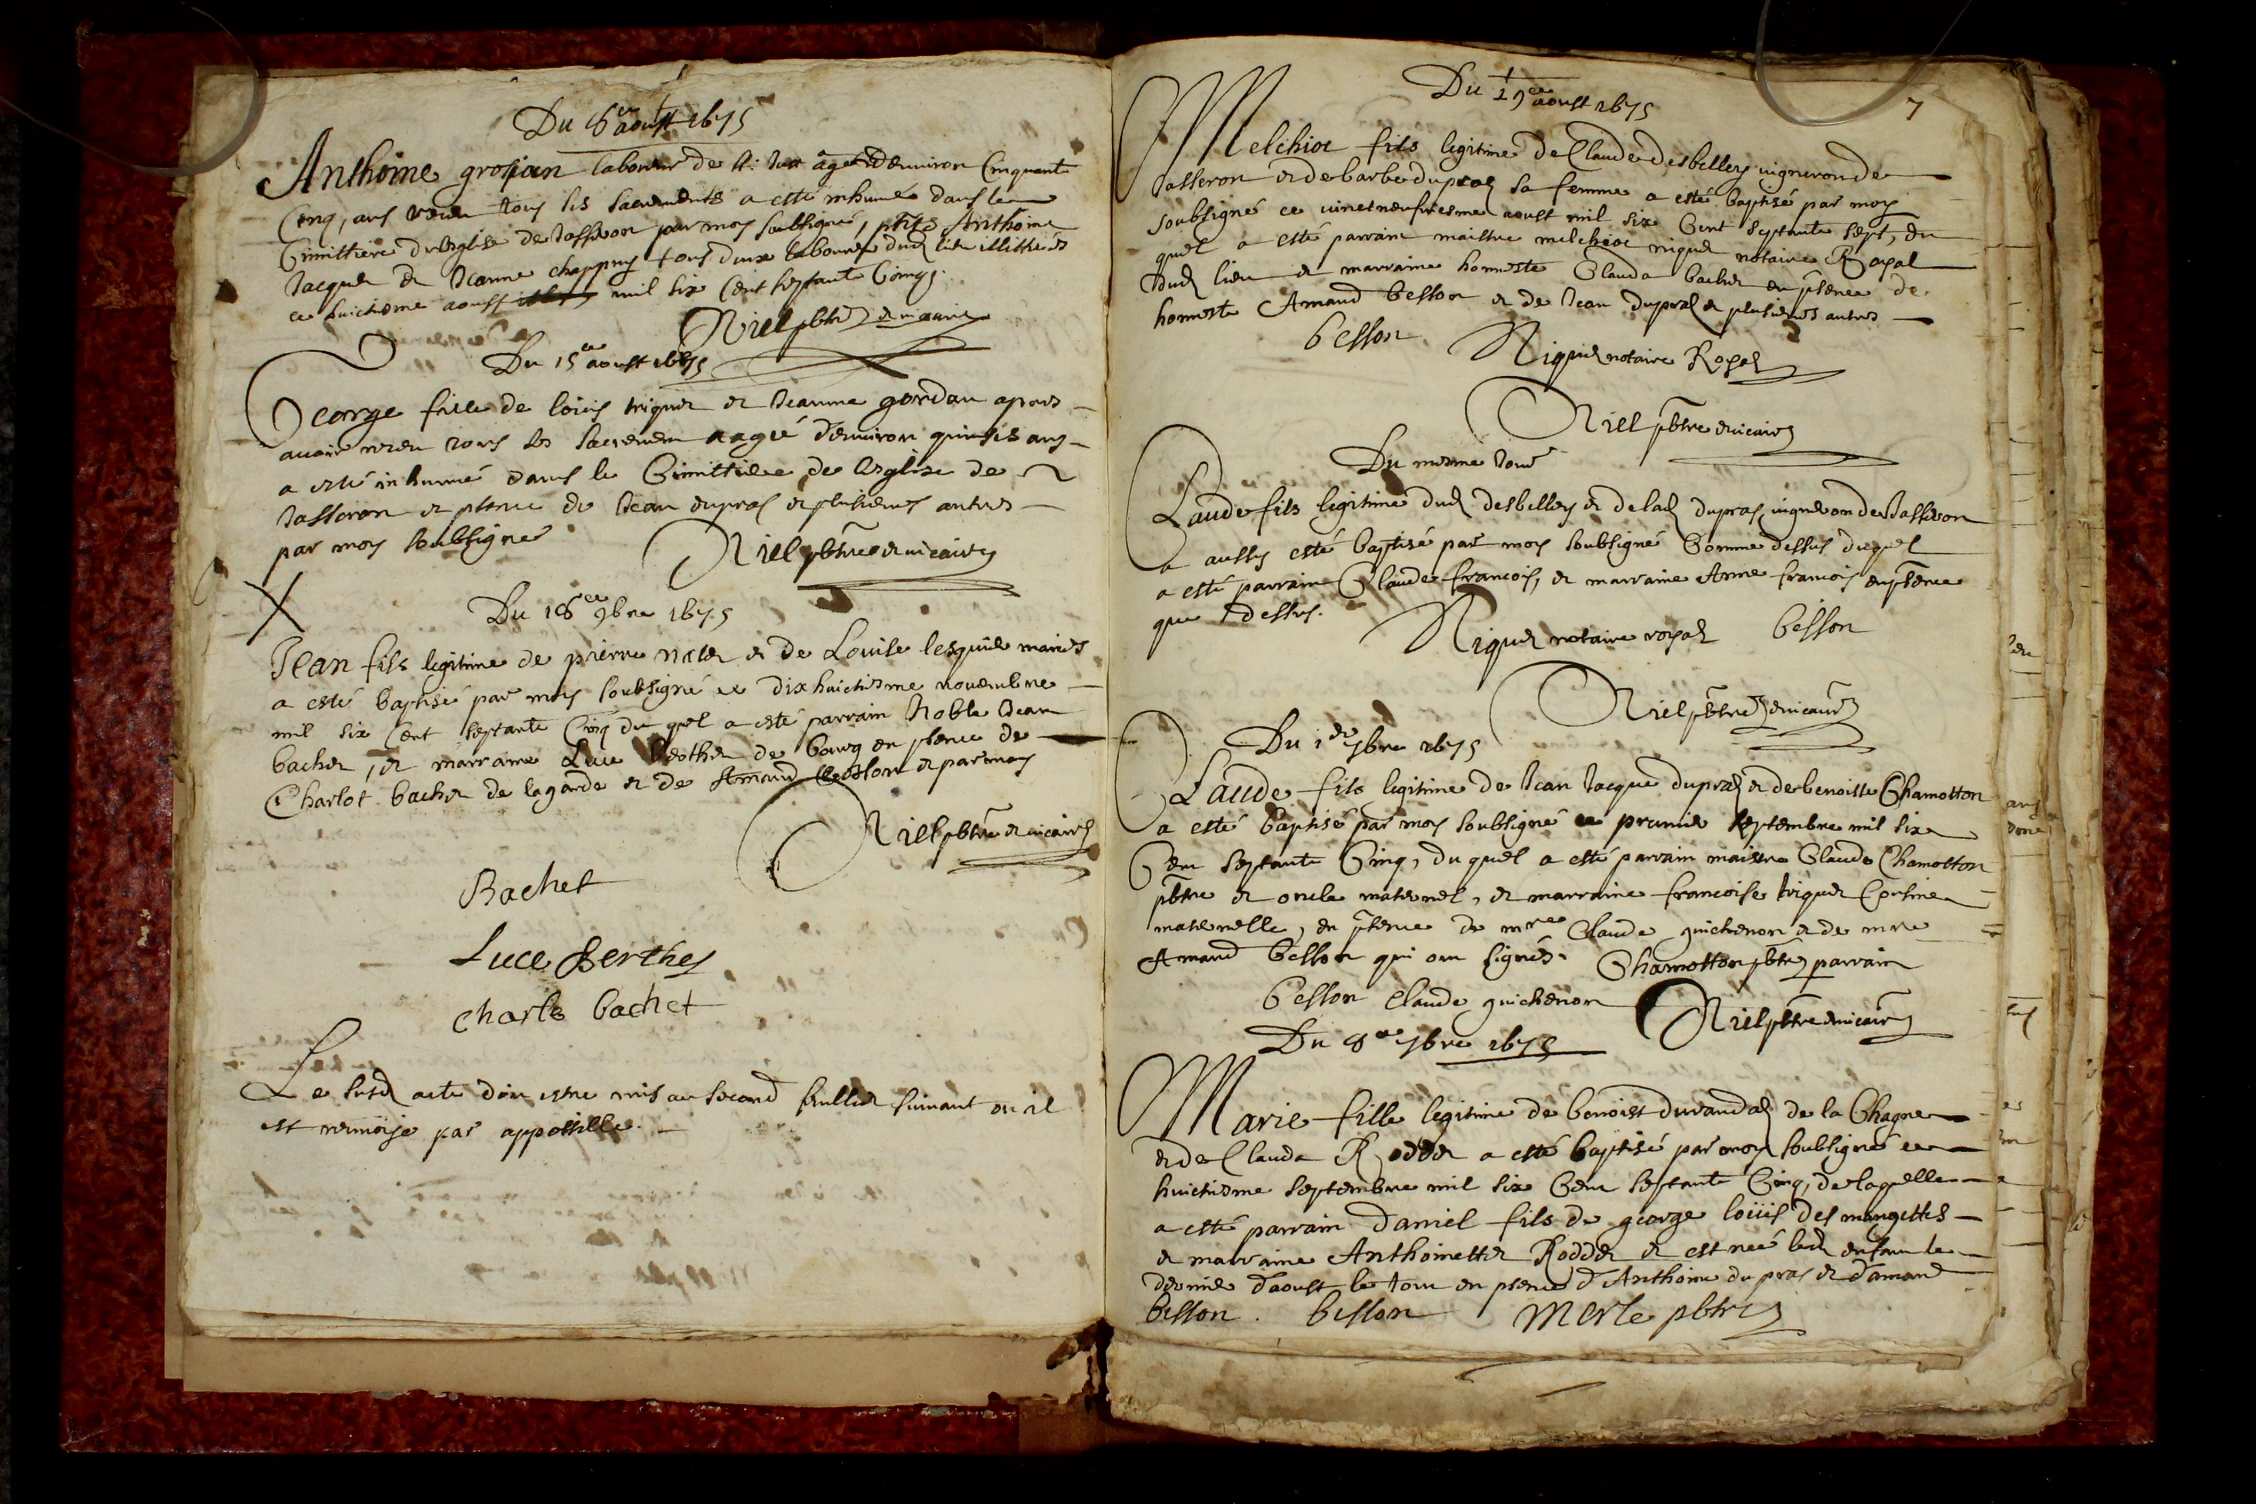 Du 8e aoust 1675
Anthoine grosjan laboureur de St Just âgé denviron Cinquante
Cinq, ans receu tous ses sacrements a esté inhumé dans le
Cimittiere de leglise de Jasseron par moy soubsigné, pnts Anthoine
Jaquet et Jeanne chappuy tous deux laboureur dud lieu illitterés
ce huictieme aoust mil six Cent septante Cinq.
Niel pbtre et vicaire
Du 15e aoust 1675
George fille de loüis triquet et Jeanne gordan apres
avoir receu tous les sacremens aagée d'environ quinses ans
a esté inhumé dans le Cimittiere de leglise de
Jasseron et pntence de Jean dupras et plusieurs autres
par moy soubsigné
Niel pbtre et vicaire
X
Du 18e 9bre 1675
Jean fils legitime de pierre et de Louise lesquier mariés
a esté baptisé par moy soubsigné ce dixhuictiesme novembre
mil six Cent septante Cinq du quel a esté parrain Noble Jean
bachet, et marraine Luce berthet de bourg en pntence de
Charlot bachet de lagarde et de Amand besson et par moy
Niel pbtre et vicaire
Bachet
Luce Berthet
Charle bachet
Le susd acte doit estre mis au second feullet suivant ou il
est remoÿe par appostille.
7
Du 19e aoust 1675
Melchior fils legitime de Claude desbelley vigneron de
Jasseron et de barbe dupras sa femme a esté baptisé par moy
soubsigné ce vinetneufviesme aoust mil six Cent septante sept, du
quel a esté parrain maistre melchior niquet notaire Royal
dud lieu et marraine honneste Clauda bachet en pntence de
honneste Amand besson et de Jean dupras et plusieurs autres
besson Niquet notaire Royal
Niel pbtre et vicaire
Du mesme Jour
Claude fils legitime dud desbelley et de lad dupras vigneron de Jasseron
a aussy esté baptisé par moy soubsigné Comme dessus duquel
a esté parrain Claude francois, et marraine Anne francois en pntence
que dessus.
Niquet notaire royal besson
Niel pbtre et vicaire
Du 1er 7bre 1675
Claude fils legitime de Jean Jacque dupras et de benoiste Chamotton
a esté baptisé par moy soubsigné ce premier septembre mil six
Cent septante Cinq, du quel a esté parrain maistre Claude Chamotton
pbtre et oncle maternel, et marraine francoise triquet Cousine
maternelle, en pntence de mre Claude guichenon et de mre
Amand besson qui ont signés. Chamotton pbtre parrain
besson Claude guichenon Niel pbtre et vicaire
Du 8e 7bre 1675
Marie fille legitime de benoist durandal de la Chagne
et de Clauda Roddet a esté baptisé par moy soubsigné ce
huictiesme septembre mil six Cent septante Cinq, de laquelle
a esté parrain daniel fils de george loüis des mangettes
et marraine Anthoinette Roddet et est née led enfant le
dernier d'aoust le tout en pntence d'Anthoine dupras et d'amand
besson. besson Merle pbtre